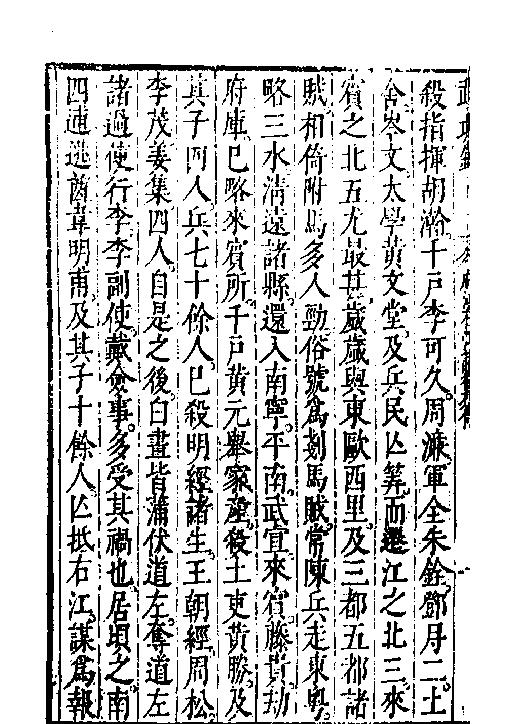 殺指揮胡瀚千戶李可久周濂軍全朱銓鄧丹二土
舍岑文太學黃文堂及兵民亾筭而遷江之北三來
賓之北五尤最甚歲歲與東歐西里及三都五都諸
賊相倚附馬多人勁俗號為剗馬賊常陳兵走東粵
略三水淸遠諸縣還入南寧平南武宣來賓藤貴劫
府庫已略來賓所千戶黃元舉家產殺土吏黃勝及
其子四人兵七十餘人已殺明經諸生王朝經周松
李茂姜集四人自是之後白晝皆蒲伏道左奪道左
諸過使行李李副使戴僉事多受其禍也居頃之南
四逋逃酋韋明甫及其子十餘人亾抵右江謀為報